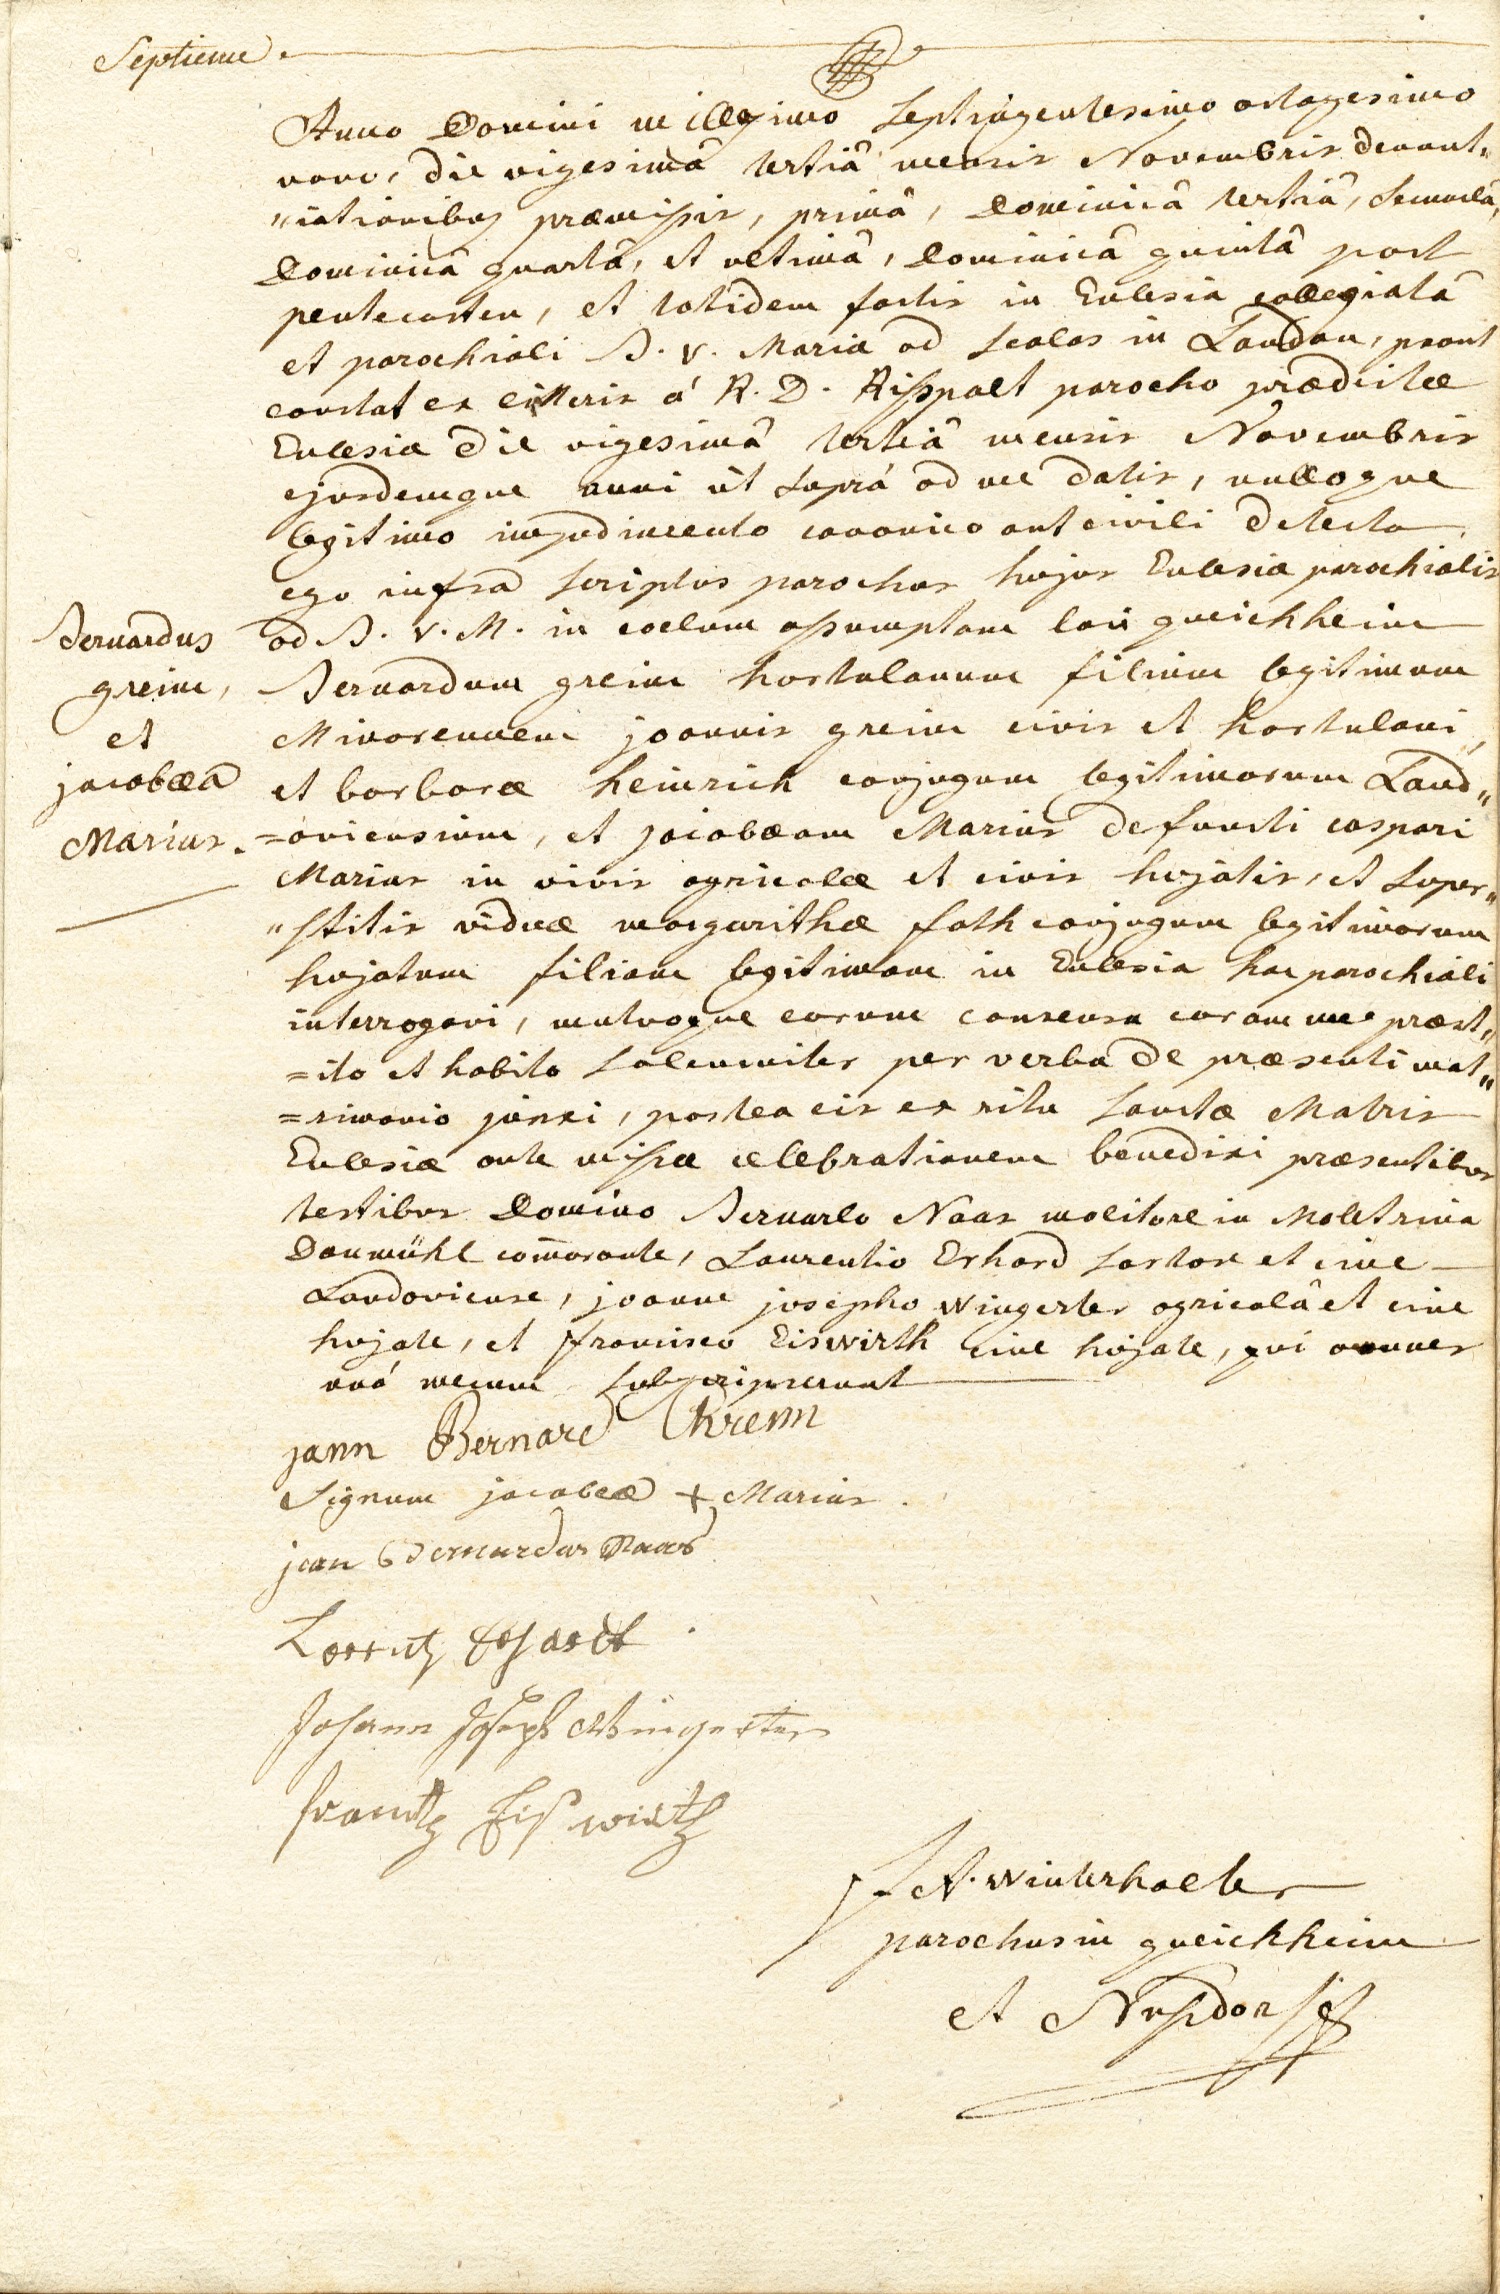 Septieme
Anno Domini millesimo Septingentesimo octogesimo
nono, die vigesimâ tertiâ mensis Novembris denunt„
„iationibus præmissis, primâ, Dominicâ tertiâ, Secundâ,
Dominicâ quartâ, et ultimâ, Dominicâ quintâ post
pentecosten, et totidem factis in Ecclesia collegiatâ
et parochiali B. V. Mariæ ad Scalas in Landau, prout
constat ex litteris á R. D. Risspalt parocho prædictæ
Ecclesiæ die vigesimâ tertiâ mensis Novembris
ejusdemque anni ut suprá ad me datis, nulloque
legitimo impedimento canonico aut civili detecto
ego infra scriptus parochus hujus Ecclesiæ parochialis
ad B. V. M. in coelum assumptam loci queichheim
Bernardum greim hortulanum filium legitimum
Minorennem joannis greim civis et hortulani,
et barbaræ heinrich conjugum legitimorum Land„
=aviensium, et jacobæam Marius defuncti caspari
Marius in vivis agricolæ et civis hujatis, et super„
„stitis viduæ margarithæ fath conjugum legitimorum
hujatum filiam legitimam in Ecclesia hac parochiali
interrogavi, mutuoque eorum consensu coram me præst„
=ito et habito solemniter per verba de præsenti mat„
=rimonio junxi, postea eis ex ritu sanctæ Matris
Ecclesiæ ante missæ celebrationem benedixi præsentibus
testibus Domino Bernardo Naas molitore in Moletrina
Daumühl com̄orante, Laurentio Erhard sartore et cive
Landaviense, joanne josepho Wingerter agricolâ et cive
hujate, et francisco Eiswirth cive hujate, qui omnes
uná mecum subscripserunt
Bernardus
greim,
et
jacobæâ
Marius.
jann Bernard Kremn
Signum jacobeæ + Marius.
jean Bernardus Naas
Lorentz Erhardt
Johann Joseph Wingerter
frantz Eiswirth
A. Winterhalter
parochus in queichheim
et Nussdorf